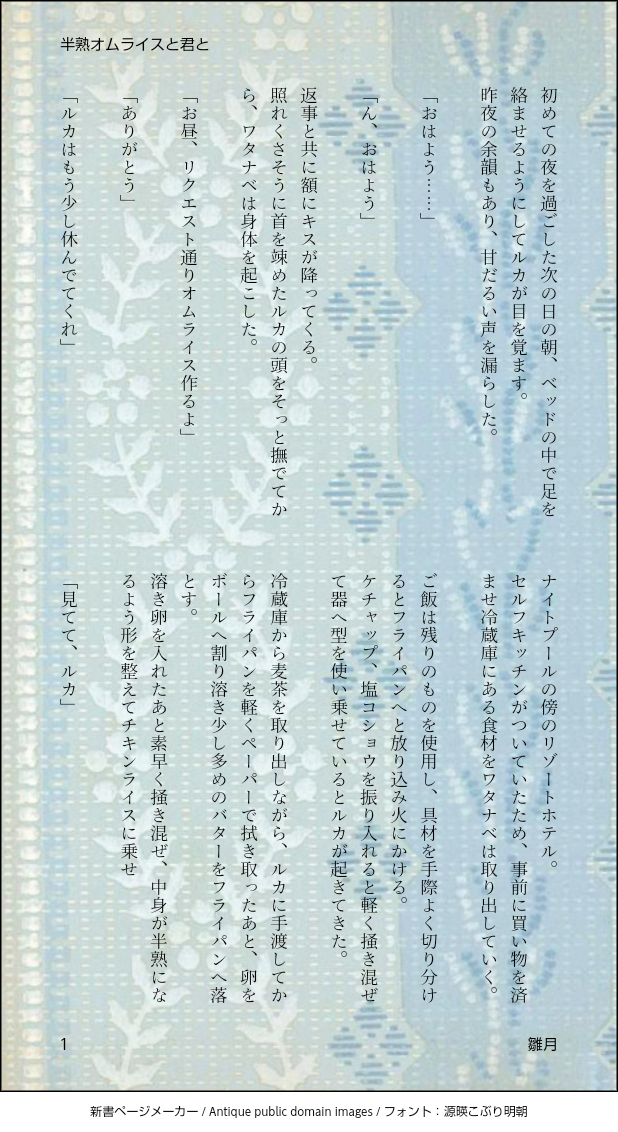 半熟オムライスと君と
初めての夜を過ごした次の日の朝、ベッドの中で足を
絡ませるようにしてルカが目を覚ます。
昨夜の余韻もあり、甘だるい声を漏らした。
「おはよう……」
「ん、おはよう」
返事と共に額にキスが降ってくる。
照れくさそうに首を竦めたルカの頭をそっと撫でてか
ら、ワタナベは身体を起こした。
「お昼、リクエスト通りオムライス作るよ」
「ありがとう」
「ルカはもう少し休んでてくれ」
ナイトプールの傍のリゾートホテル。
セルフキッチンがついていたため、事前に買い物を済
ませ冷蔵庫にある食材をワタナベは取り出していく。
ご飯は残りのものを使用し、具材を手際よく切り分け
るとフライパンへと放り込み火にかける。
ケチャップ、塩コショウを振り入れると軽く掻き混ぜ
て器へ型を使い乗せているとルカが起きてきた。
冷蔵庫から麦茶を取り出しながら、ルカに手渡してか
らフライパンを軽くペーパーで拭き取ったあと、卵を
ボールへ割り溶き少し多めのバターをフライパンへ落
とす。
溶き卵を入れたあと素早く掻き混ぜ、中身が半熟にな
るよう形を整えてチキンライスに乗せ
「見てて、ルカ」
1
雛月
新書ページメーカー / Antique public domain images / フォント：源暎こぶり明朝